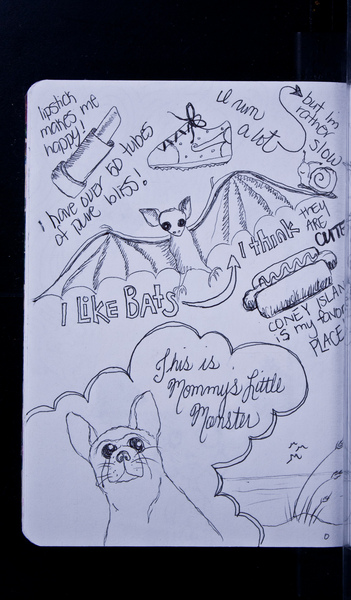 lipstick
makes me
happy!
I have over 150 tubes
of pure bliss!
I run
a lot
but i'm
rather
slow
I LiKE BAts
I think
tHEY
ARE
CUTE
CONEY ISLAN
is my favori
PLACE
This is
Mommy's Little
Monster